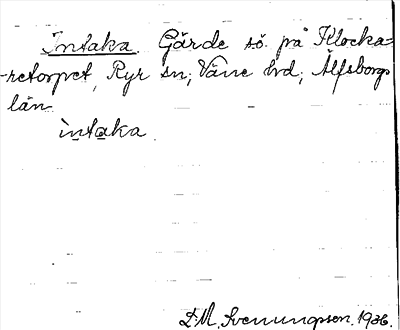 Intaka. Gärde sö. på Klocka-
-retorpet, Ryr sn; Väne hd; Älfsborgs
län.
ìntaka.
D.M. Svenungsson. 1936.